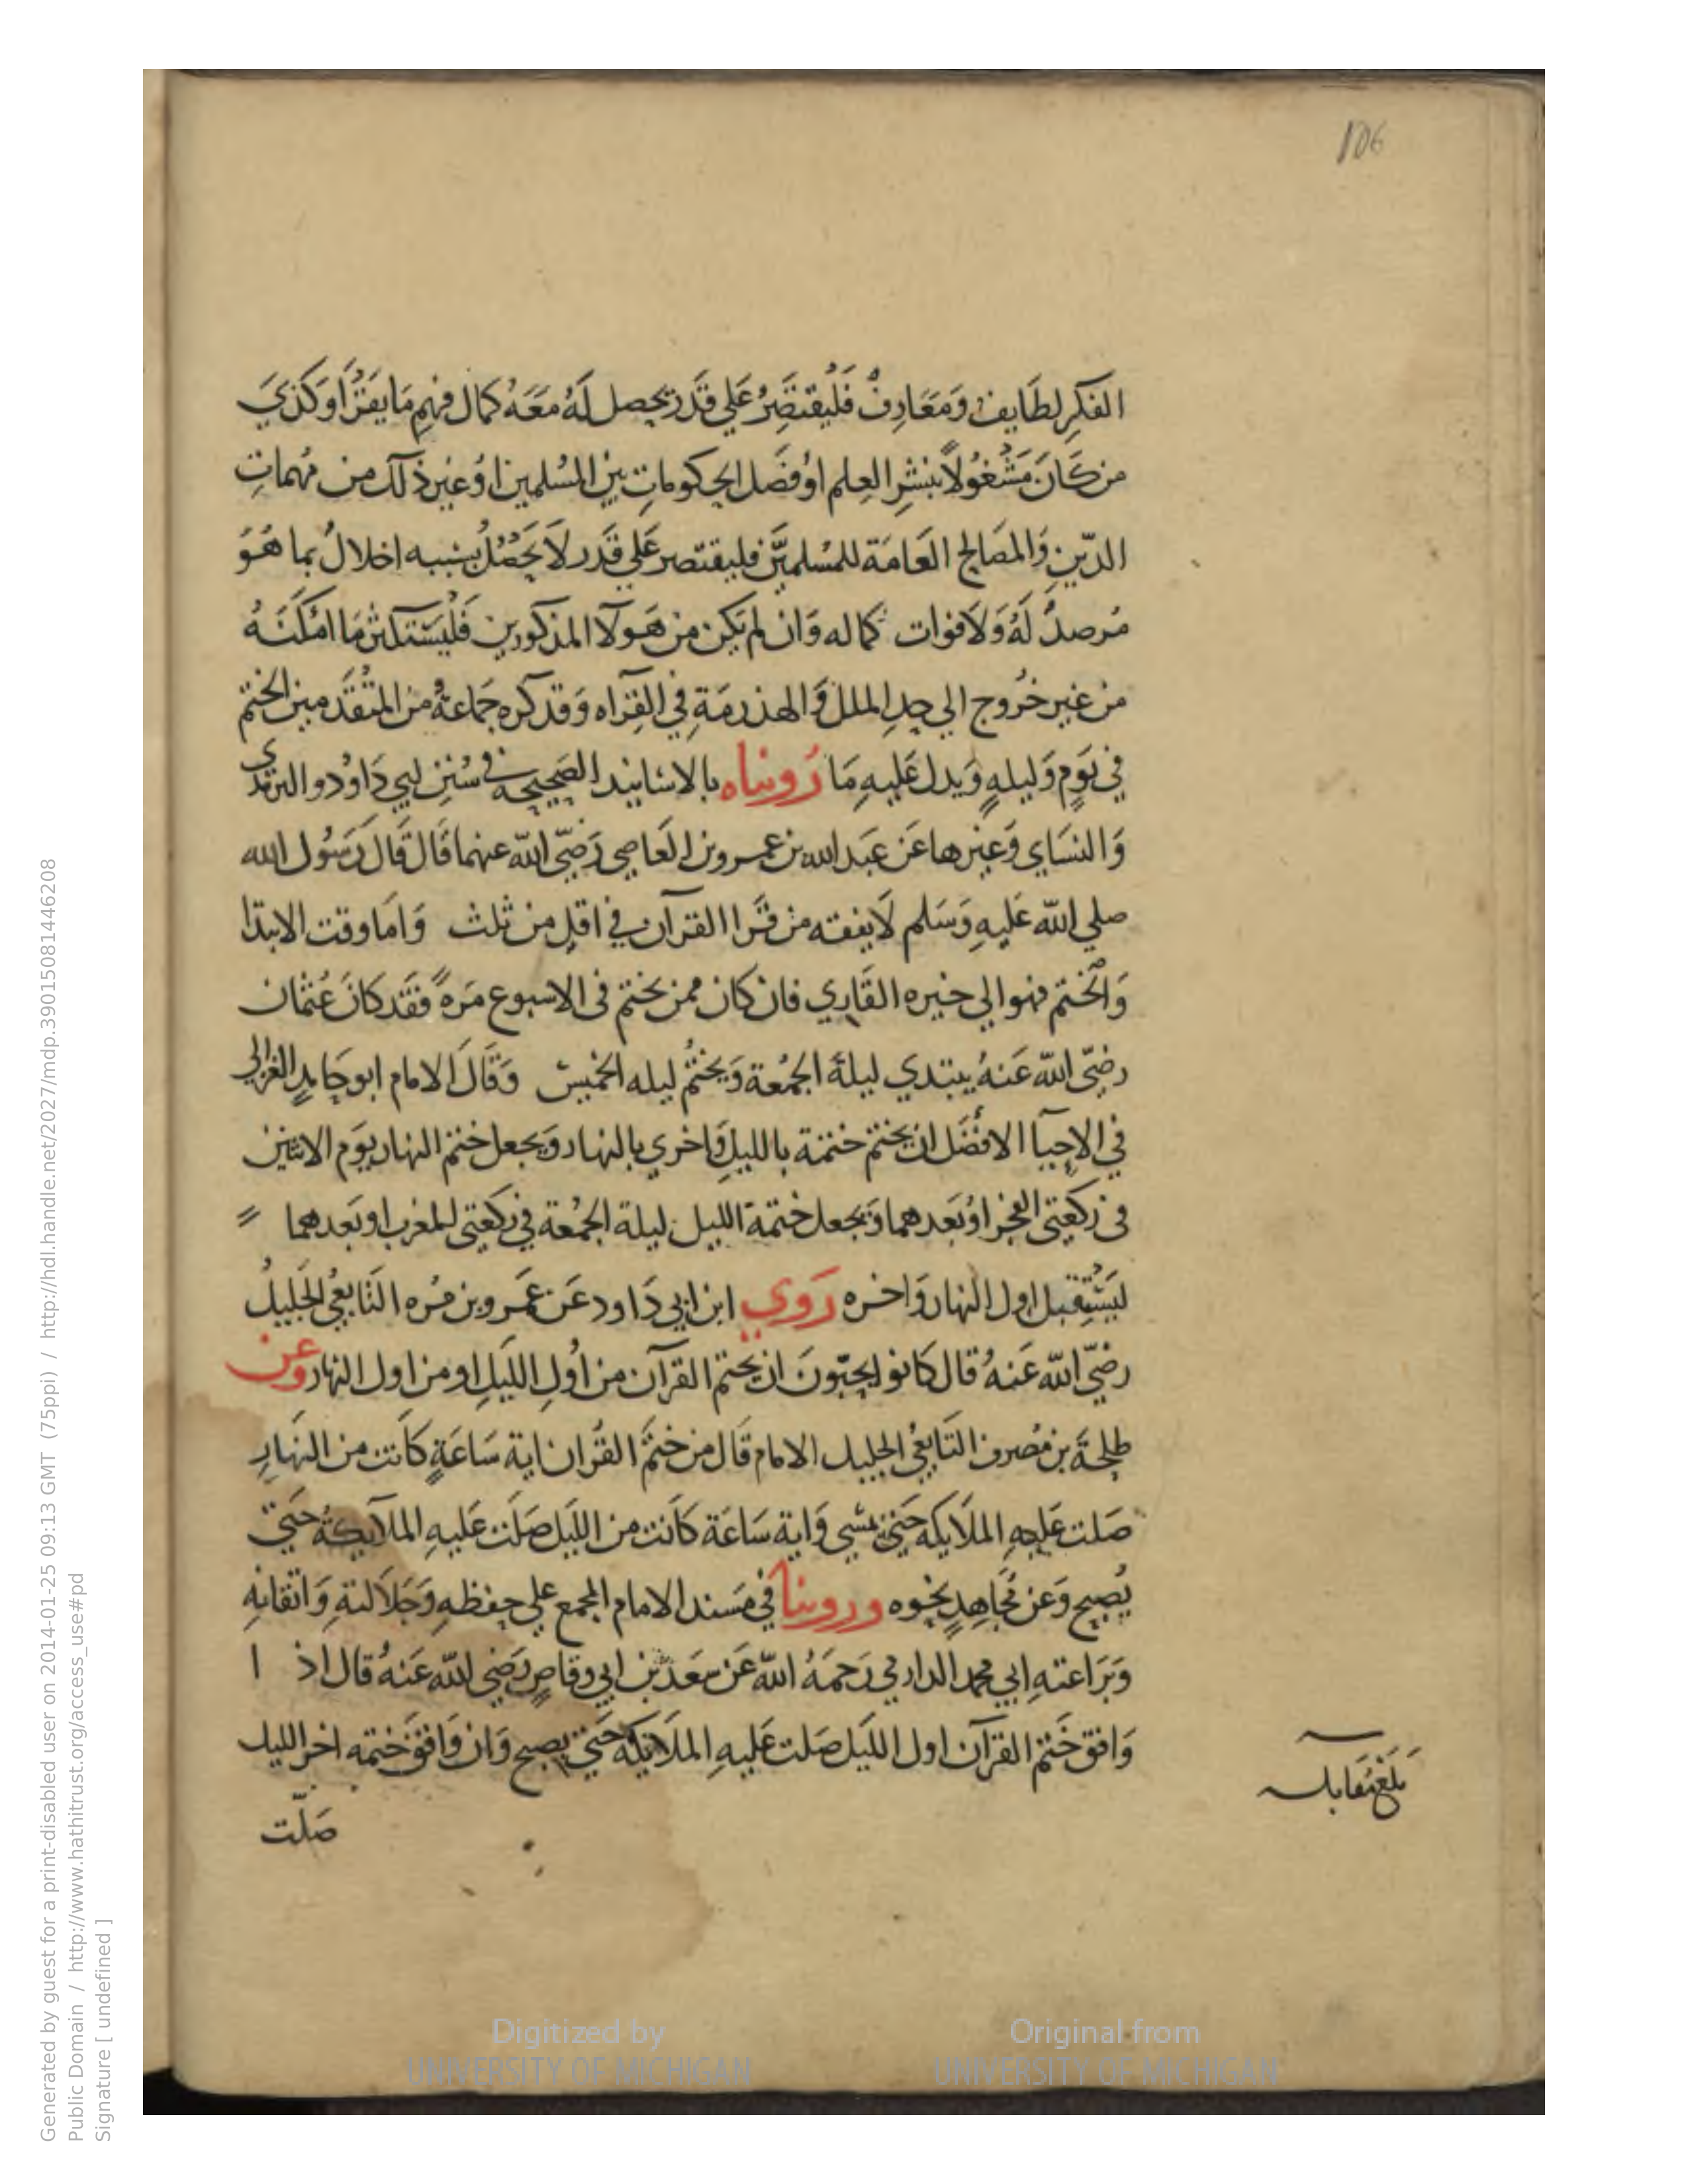 106
الفكر لطايف ومعارف فليقتصر علي قدر يحصل له معه كمال فهم ما يقرا وكذي
من كان مشغولا بنشر العلم او فصل الحكومات بين المسلمين او غير ذلك من مهمات
الدين والمصالح العامة للمسلمين فليقتصر علي قدر لا يحصل بسببه اخلال بما هو
مرصد له ولا فوات كماله وان لم يكن من هولا المذكورين فليستكثر ما امكنه
من غير خروج الي حد الملل والهذرمة في القراه وقد كره جماعة من المتقدمين الختم
في يوم وليله ويدل عليه ما رويناه بالاسانيد الصحيحه في سنن ابي داود والترمذي
والنساي وغيرها عن عبد الله بن عمرو بن العاصي رضي الله عنهما قال قال رسول الله
صلي الله عليه وسلم لا يفقه من قرا القرآن في اقل من ثلث واما وقت الابتدا
والختم فهو الي خيره القاري فان كان ممن يختم في الاسبوع مرة فقد كان عثمان
رضي الله عنه يبتدي ليلة الجمعة ويختم ليله الخميس وقال الامام ابو حامد الغزالي
في الاحيآ الافضل ان يختم ختمة بالليل واخري بالنهار ويجعل ختم النهار يوم الاثنين
في ركعتي الفجر او بعدهما ويجعل ختمة الليل ليلة الجمعة في ركعتي المغرب او بعدهما
ليستقبل اول النهار واخره روي ابن ابي داود عن عمرو بن مره التابعي الجليل
رضي الله عنه قال كانوا يحبون ان يختم القرآن من اول الليل او من اول النهار وعن
طلحة بن مصرف التابعي الجليل الامام قال من ختم القران اية ساعة كانت من النهار
صلت عليه الملايكه حتي يمسي واية ساعة كانت من الليل صلت عليه الملآيكة حتي
يصبح وعن مجاهد نحوه وروينا في مسند الامام المجمع علي حفظه وجلالته واتقانه
وبراعته ابي محمد الدارمي رحمه الله عن سعد بن ابي وقاص رضي الله عنه قال اذ ا
وافق ختم القرآن اول الليل صلت عليه الملايكة حتي يصبح وان وافق ختمه اخر الليل
صلت
بلغ مقابله
Digitized by
UNIVERSITY OF MICHIGAN
Original from
UNIVERSITY OF MICHIGAN
Generated by guest for a print-disabled user on 2014-01-25 09:13 GMT (75ppi) / http://hdl.handle.net/2027/mdp.39015081446208
Public Domain / http://www.hathitrust.org/access_use#pd
Signature [ undefined ]